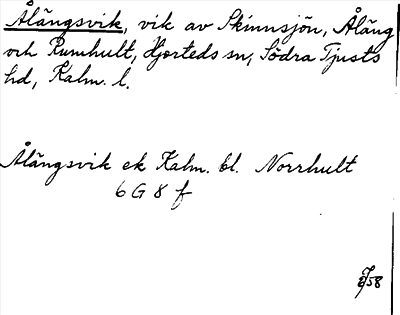 Ålängsvik, vik av Skinnsjön, Åläng
och Rumhult, Hjorteds sn, Södra Tjusts
hd, Kalm. l.
Ålängsvik ek Kalm. bl. Norrhult
6 G 8 f
58